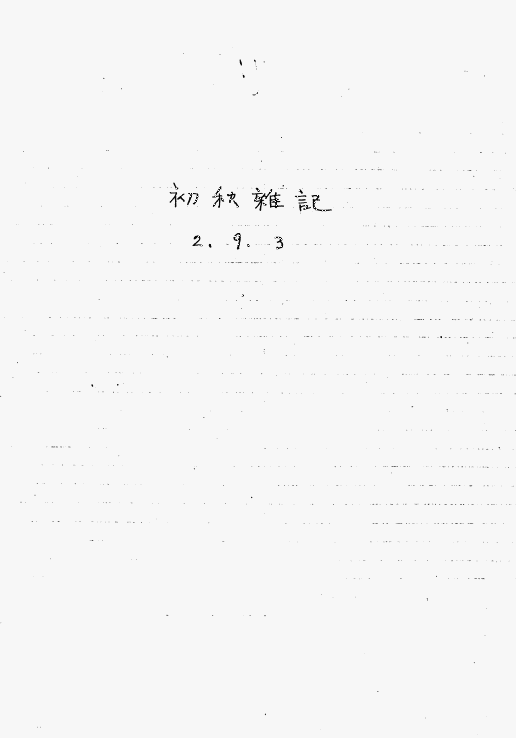 初秋雜記
2.9.3